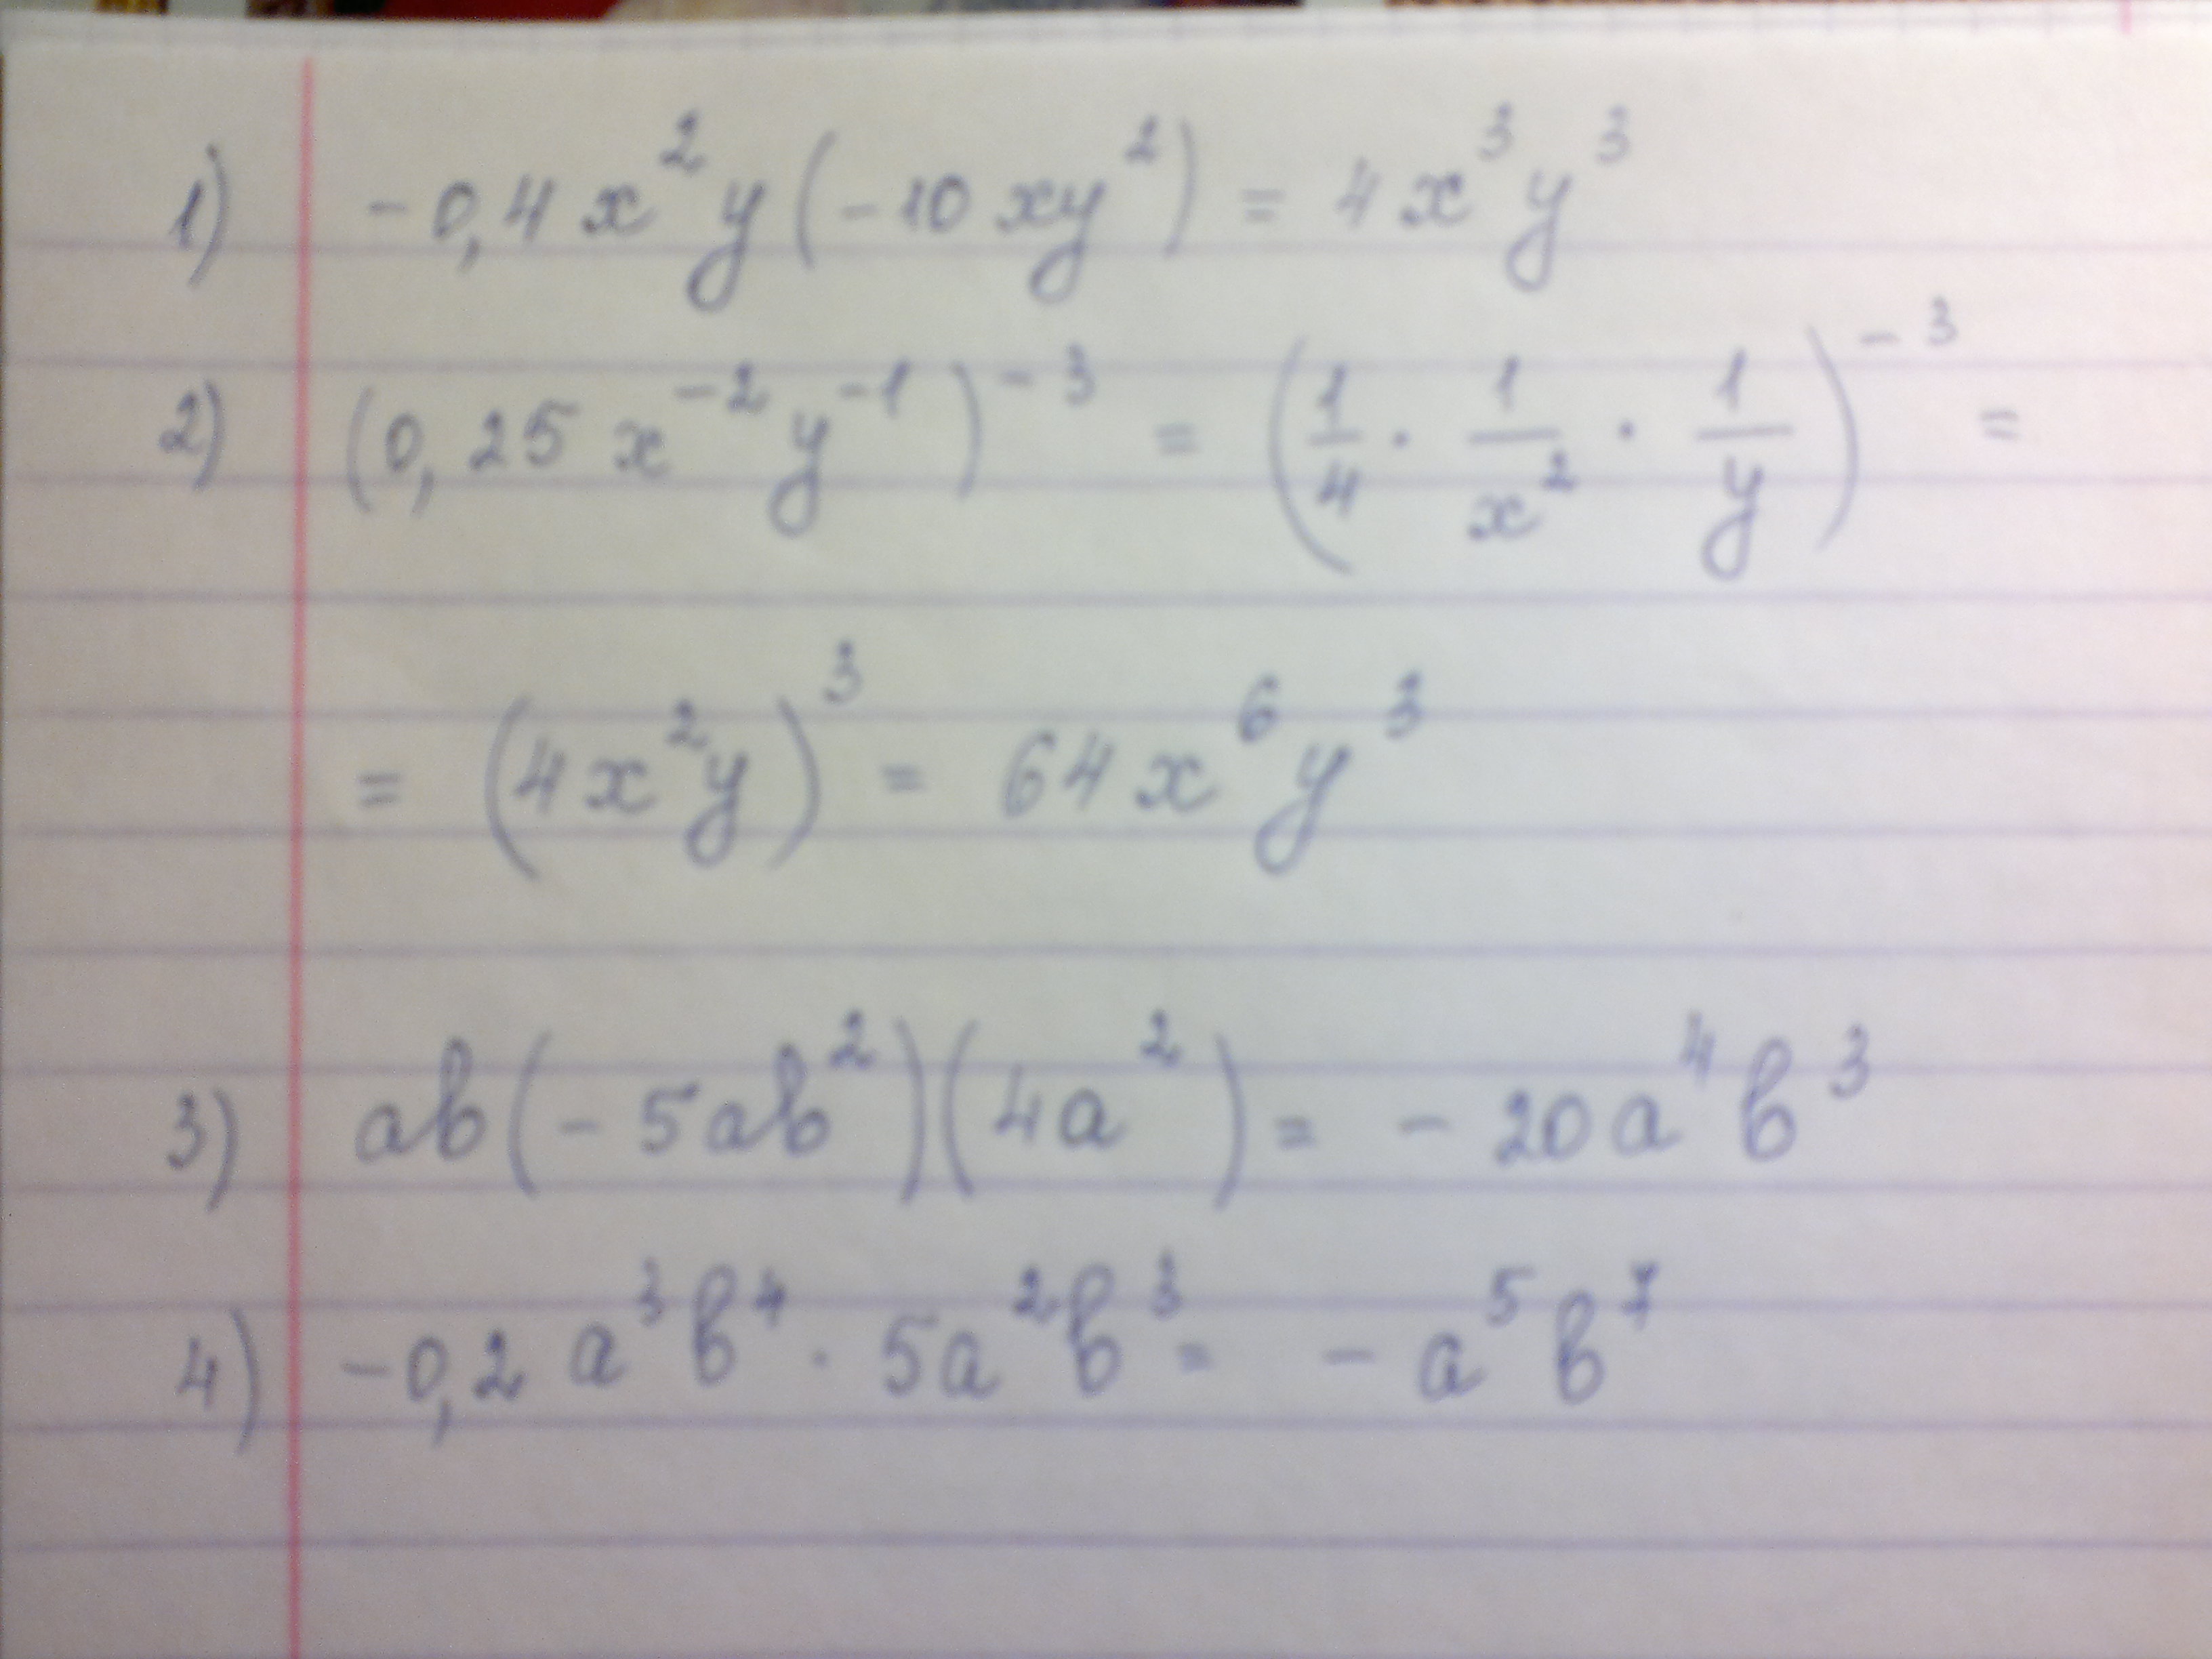 1) -0,4x²y(-10xy²) = 4x³y³
2) (0,25x⁻²y⁻¹)⁻³ = (1/4 · 1/x² · 1/y)⁻³ =
= (4x²y)³ = 64x⁶y³
3) ab(-5ab²)(4a²) = -20a⁴b³
4) -0,2a³b⁴ · 5a²b³ = -a⁵b⁷